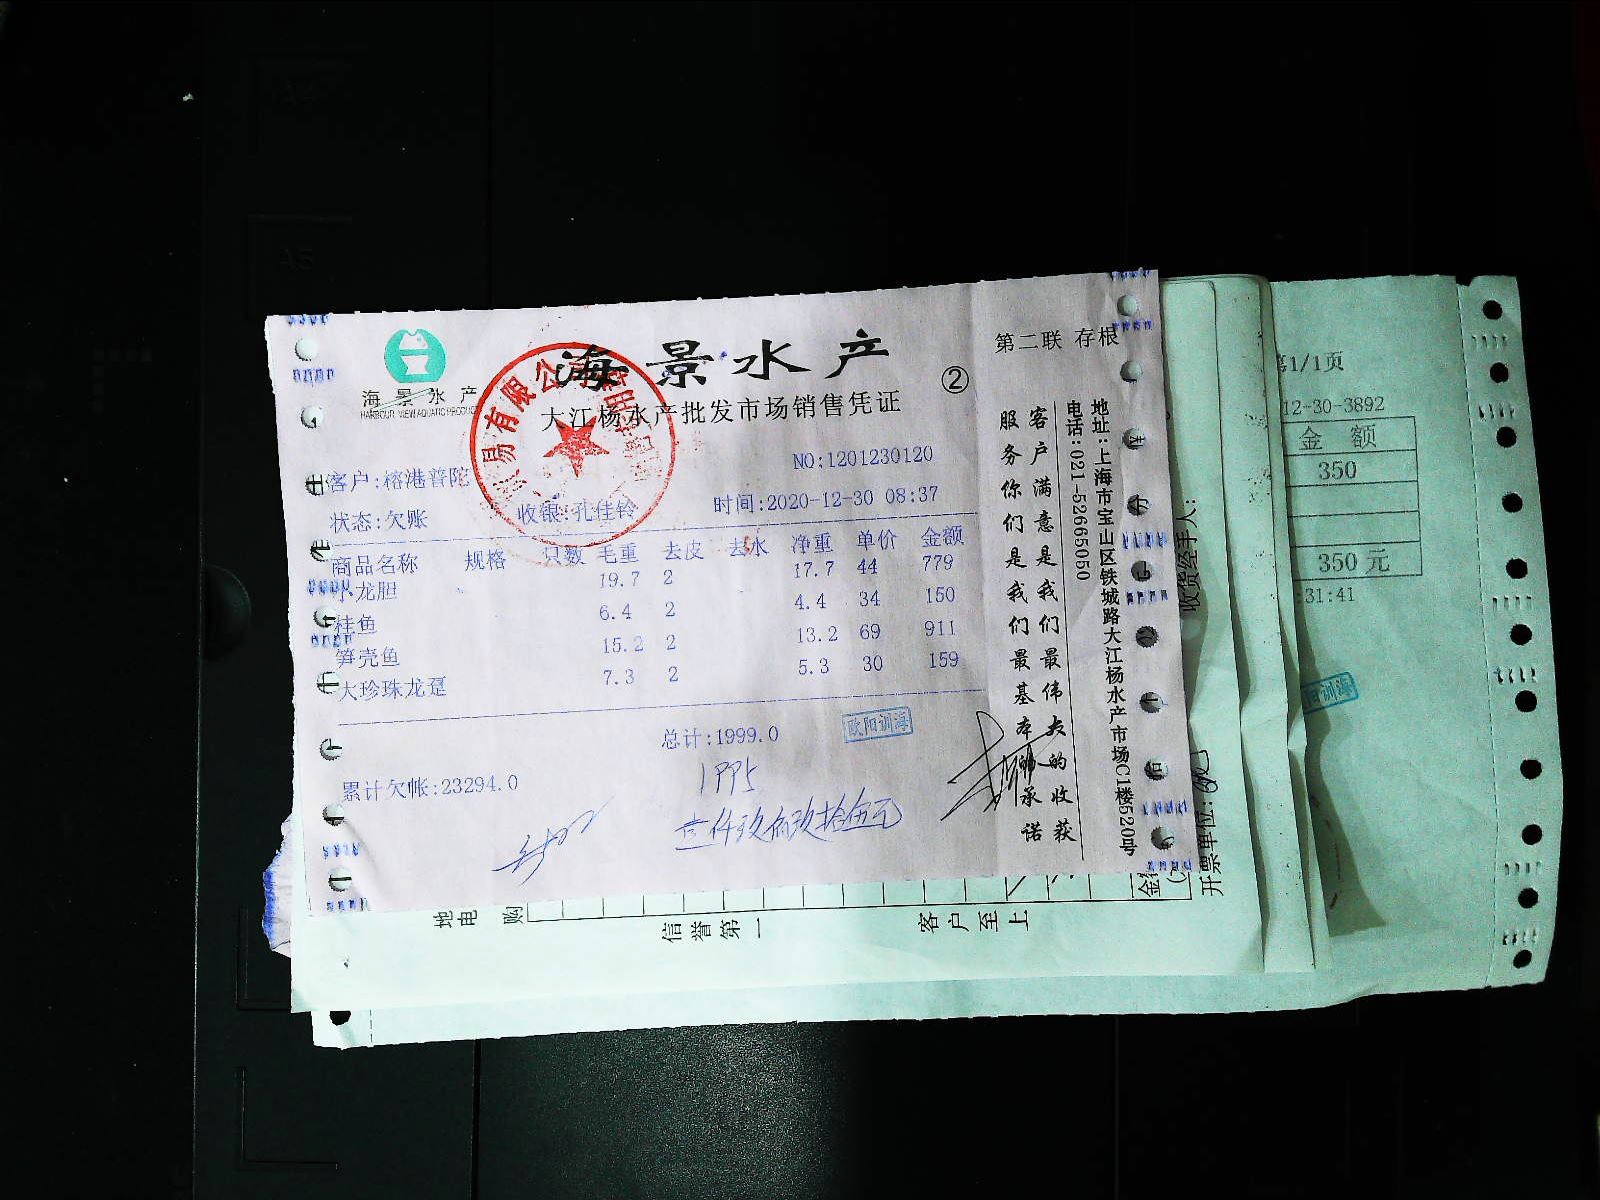 海景水产
HARBOUR VIEW AQUATIC PRODUCT
海景水产
大江杨水产批发市场销售凭证
②
第二联 存根
客户:榕港普陀
NO:1201230120
状态:欠账
收银:孔佳铃
时间:2020-12-30 08:37
商品名称 规格 只数 毛重 去皮 去水 净重 单价 金额
小龙胆 19.7 2 17.7 44 779
桂鱼 6.4 2 4.4 34 150
笋壳鱼 15.2 2 13.2 69 911
大珍珠龙趸 7.3 2 5.3 30 159
总计:1999.0
欧阳训海
累计欠帐:23294.0
1995
壹仟玖佰玖拾伍元
客户满意是我们最伟大的收获
服务你们是我们最基本的承诺
地址:上海市宝山区铁城路大江杨水产市场C1楼520号
电话:021-52665050
易有限公
收货经手人:
开票单位:
金
地
电
购
信誉第一
客户至上
第1/1页
12-30-3892
金 额
350
350元
:31:41
欧阳训海